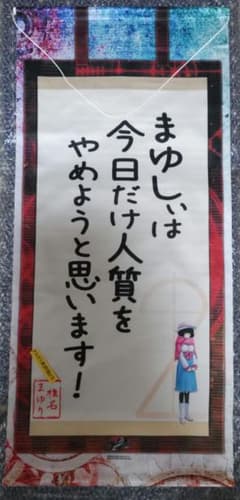 まゆしぃは
今日だけ人質を
やめようと思います！
椎名
まゆり